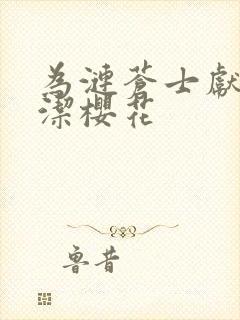 為漣蒼士獻
潔櫻花
魯昔